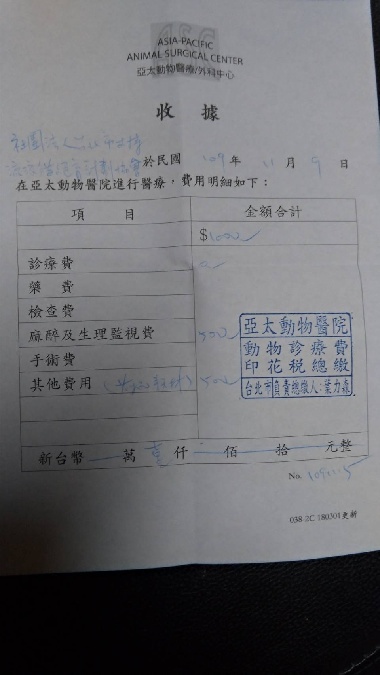 ASIA-PACIFIC
ANIMAL SURGICAL CENTER
亞太動物醫療/外科中心
收 據
社團法人台北市支持
流浪貓絕育計劃協會 於民國 109 年 11 月 9 日
在亞太動物醫院進行醫療，費用明細如下：
項 目 金額合計
$1000
診療費
藥 費
檢查費
麻醉及生理監視費 500
手術費
其他費用 500
亞太動物醫院
動物診療費
印花稅總繳
台北市負責總繳人:葉力森
新台幣 萬 壹 仟 佰 拾 元整
No.
038-2C 180301更新